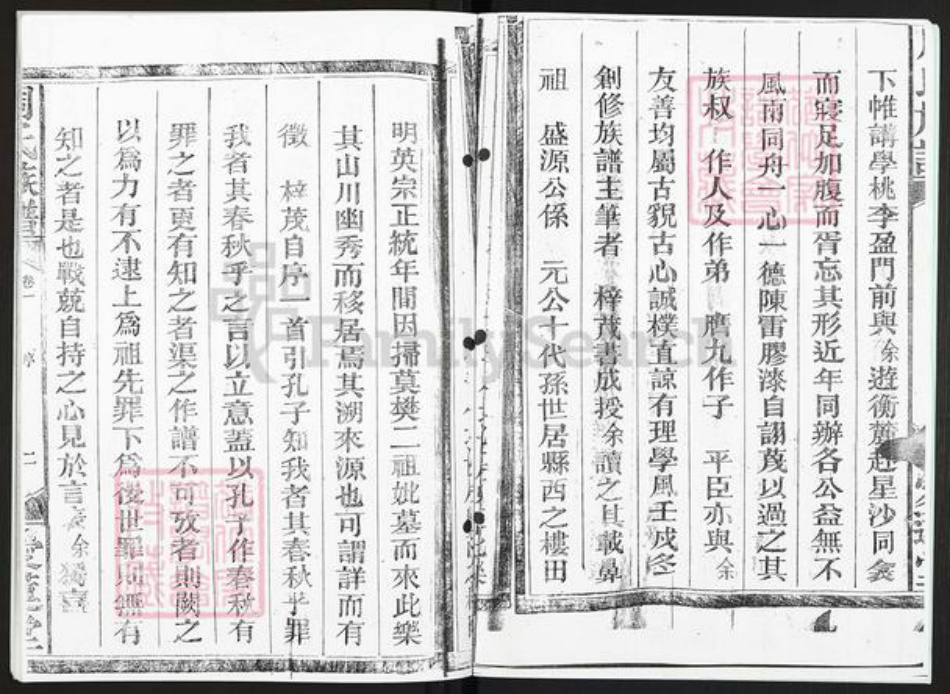 下帷講學桃李盈門前與余遊衡麓赴星沙同衾
而寢足加腹而胥忘其形近年同辦各公益無不
風雨同舟一心一德陳雷膠漆自謂蔑以過之其
族叔 作人及作弟 膺九作子 平臣亦與余
友善均屬古貌古心誠樸直諒有理學風壬戌冬
創修族譜主筆者 梓茂書成授余讀之其載鼻
祖 盛源公係 元公十代孫世居縣西之樓田
明英宗正統年間因掃莫樊二祖妣墓而來此樂
其山川幽秀而移居焉其溯來源也可謂詳而有
徵 梓茂自序一首引孔子知我者其春秋乎罪
我者其春秋乎之言以立意蓋以孔子作春秋有
罪之者更有知之者渠之作譜不可攷者則闕之
以為力有不逮上為祖先罪下為後世罪則無有
知之者是也戰兢自持之心見於言表余獨喜
周氏族譜 卷一 序 二
FamilySearch